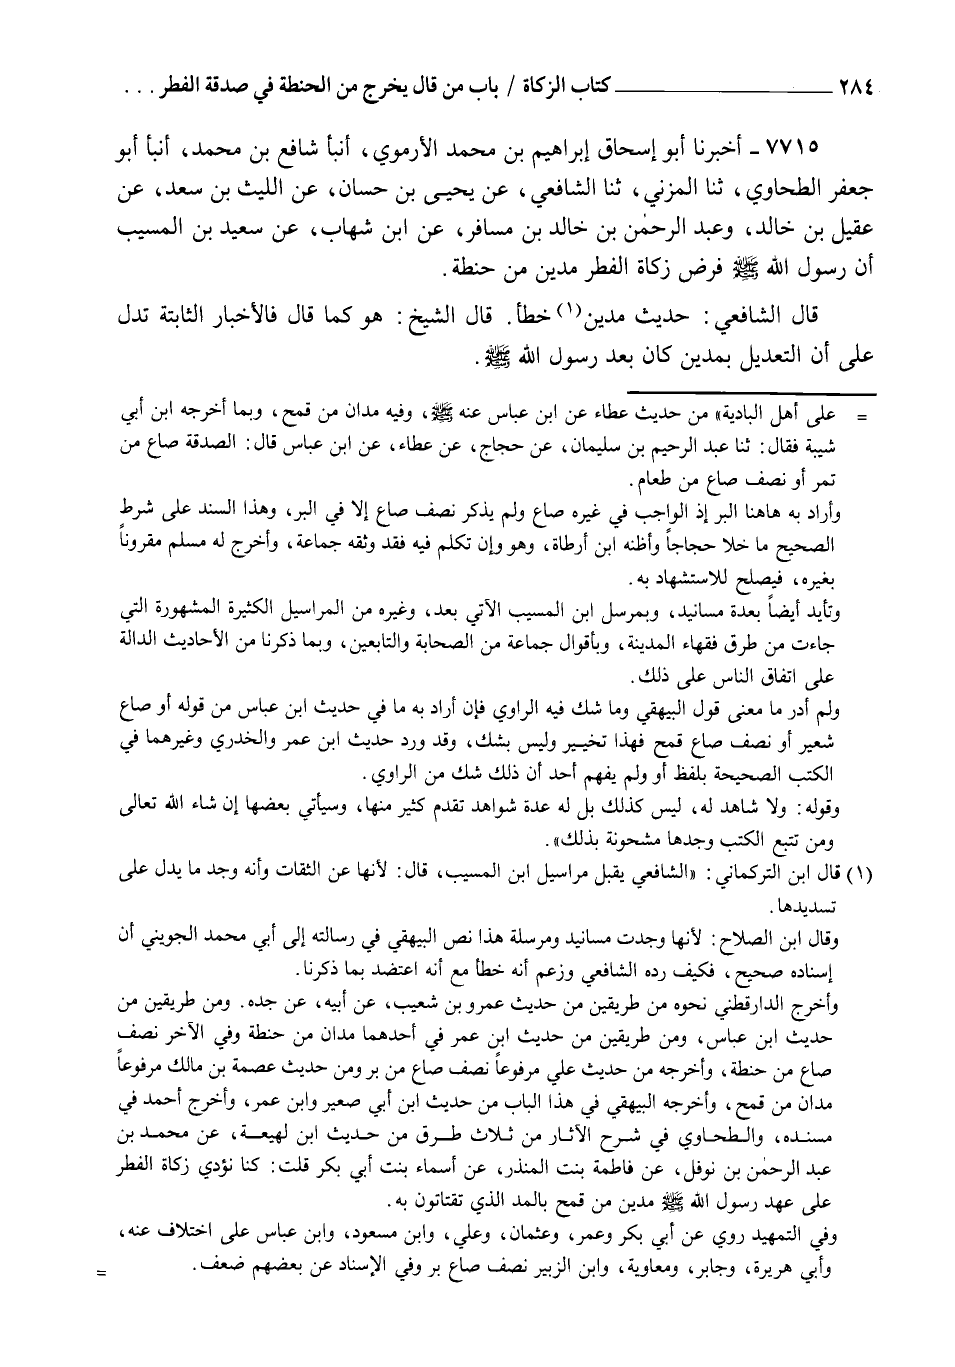 ٢٨٤ ــــــــــــــــــــ كتاب الزكاة / باب من قال يخرج من الحنطة في صدقة الفطر . . .
٧٧١٥ ـ أخبرنا أبو إسحاق إبراهيم بن محمد الأرموي، أنبأ شافع بن محمد، أنبأ أبو
جعفر الطحاوي، ثنا المزني، ثنا الشافعي، عن يحيى بن حسان، عن الليث بن سعد، عن
عقيل بن خالد، وعبد الرحمٰن بن خالد بن مسافر، عن ابن شهاب، عن سعيد بن المسيب
أن رسول الله ﷺ فرض زكاة الفطر مدين من حنطة.
قال الشافعي: حديث مدين(١) خطأ. قال الشيخ: هو كما قال فالأخبار الثابتة تدل
على أن التعديل بمدين كان بعد رسول الله ﷺ.
= على أهل البادية» من حديث عطاء عن ابن عباس عنه ﷺ، وفيه مدان من قمح، وبما أخرجه ابن أبي
شيبة فقال: ثنا عبد الرحيم بن سليمان، عن حجاج، عن عطاء، عن ابن عباس قال: الصدقة صاع من
تمر أو نصف صاع من طعام.
وأراد به هاهنا البر إذ الواجب في غيره صاع ولم يذكر نصف صاع إلا في البر، وهذا السند على شرط
الصحيح ما خلا حجاجاً وأظنه ابن أرطاة، وهو وإن تكلم فيه فقد وثقه جماعة، وأخرج له مسلم مقروناً
بغيره، فيصلح للاستشهاد به.
وتأيد أيضاً بعدة مسانيد، وبمرسل ابن المسيب الآتي بعد، وغيره من المراسيل الكثيرة المشهورة التي
جاءت من طرق فقهاء المدينة، وبأقوال جماعة من الصحابة والتابعين، وبما ذكرنا من الأحاديث الدالة
على اتفاق الناس على ذلك.
ولم أدر ما معنى قول البيهقي وما شك فيه الراوي فإن أراد به ما في حديث ابن عباس من قوله أو صاع
شعير أو نصف صاع قمح فهذا تخيير وليس بشك، وقد ورد حديث ابن عمر والخدري وغيرهما في
الكتب الصحيحة بلفظ أو ولم يفهم أحد أن ذلك شك من الراوي.
وقوله: ولا شاهد له، ليس كذلك بل له عدة شواهد تقدم كثير منها، وسيأتي بعضها إن شاء الله تعالى
ومن تتبع الكتب وجدها مشحونة بذلك».
(١) قال ابن التركماني: «الشافعي يقبل مراسيل ابن المسيب، قال: لأنها عن الثقات وأنه وجد ما يدل على
تسديدها.
وقال ابن الصلاح: لأنها وجدت مسانيد ومرسلة هذا نص البيهقي في رسالته إلى أبي محمد الجويني أن
إسناده صحيح، فكيف رده الشافعي وزعم أنه خطأ مع أنه اعتضد بما ذكرنا.
وأخرج الدارقطني نحوه من طريقين من حديث عمرو بن شعيب، عن أبيه، عن جده. ومن طريقين من
حديث ابن عباس، ومن طريقين من حديث ابن عمر في أحدهما مدان من حنطة وفي الآخر نصف
صاع من حنطة، وأخرجه من حديث علي مرفوعاً نصف صاع من بر ومن حديث عصمة بن مالك مرفوعاً
مدان من قمح، وأخرجه البيهقي في هذا الباب من حديث ابن أبي صعير وابن عمر، وأخرج أحمد في
مسنده، والطحاوي في شرح الآثار من ثلاث طرق من حديث ابن لهيعة، عن محمد بن
عبد الرحمٰن بن نوفل، عن فاطمة بنت المنذر، عن أسماء بنت أبي بكر قلت: كنا نؤدي زكاة الفطر
على عهد رسول الله ﷺ مدين من قمح بالمد الذي تقتاتون به.
وفي التمهيد روي عن أبي بكر وعمر، وعثمان، وعلي، وابن مسعود، وابن عباس على اختلاف عنه،
وأبي هريرة، وجابر، ومعاوية، وابن الزبير نصف صاع بر وفي الإسناد عن بعضهم ضعف. =